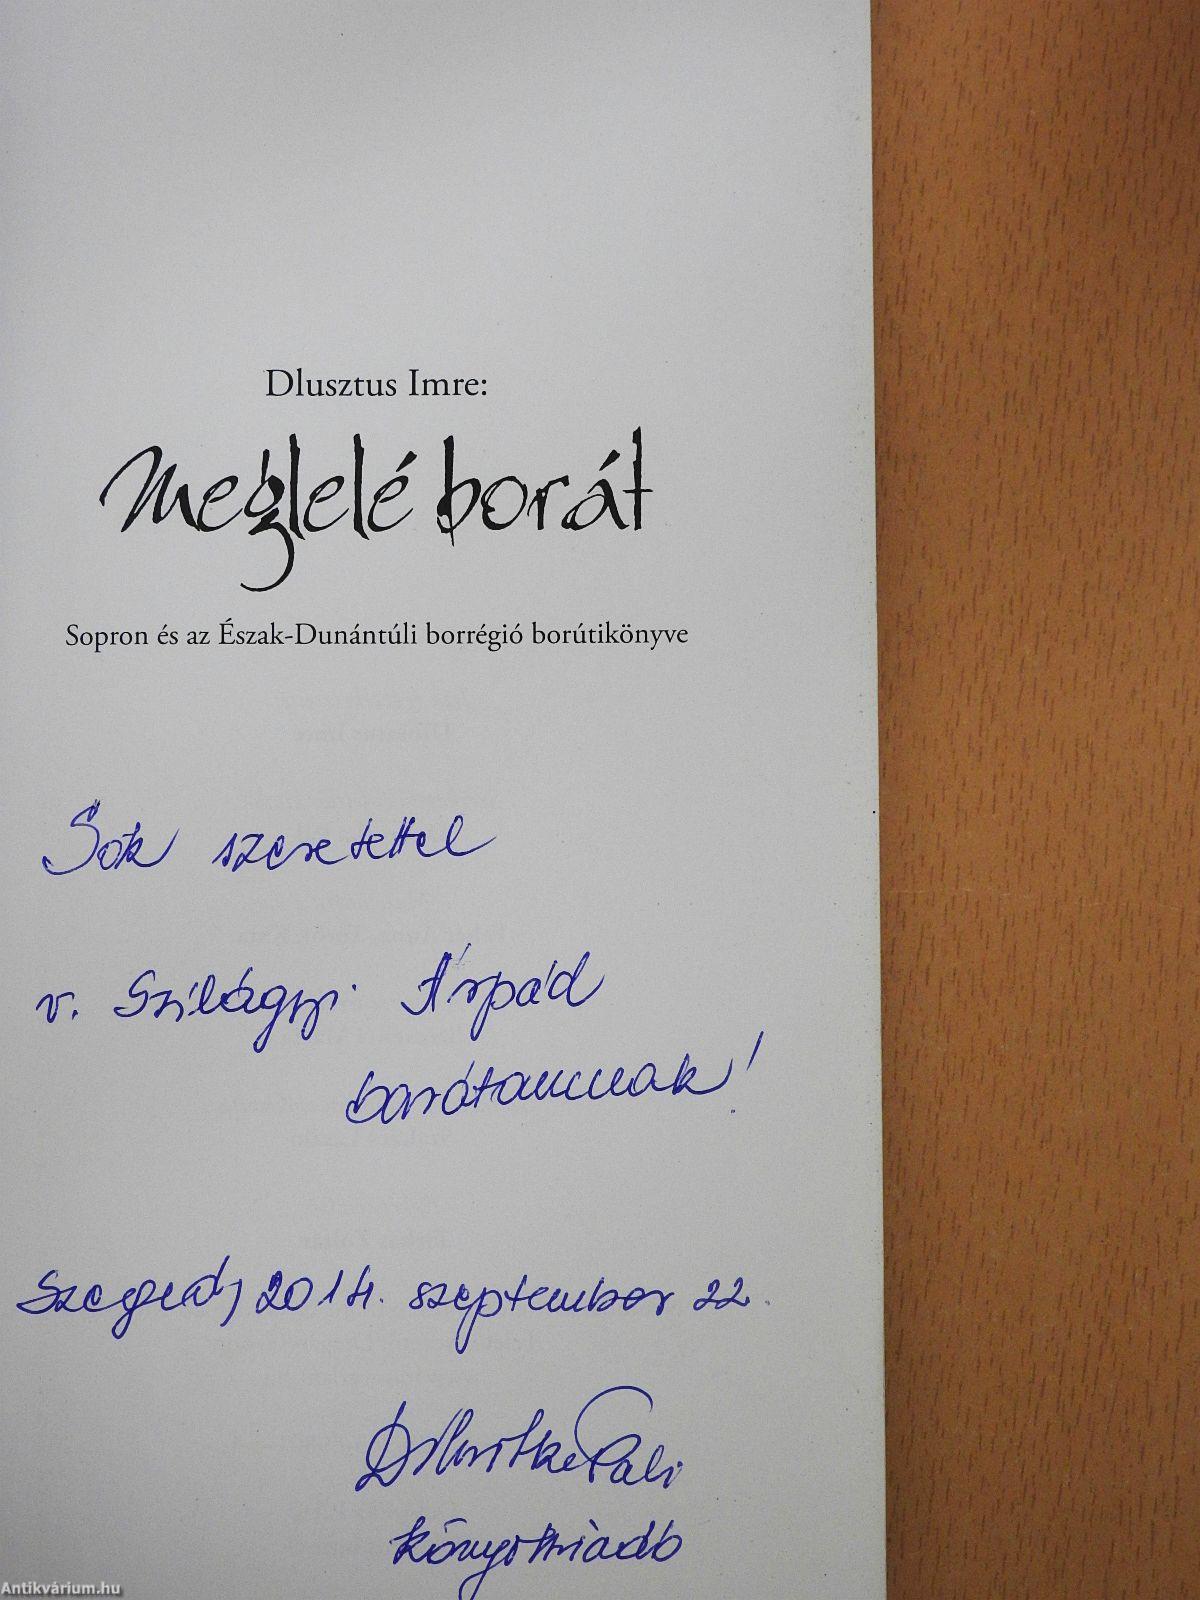 Dlusztus Imre:
Meglelé borát
Sopron és az Észak-Dunántúli borrégió borútikönyve
Sok szeretettel
v. Szilágyi Árpád
barátomnak!
Szeged, 2014. szeptember 22.
Pali
könyvkiadó
Antikvárium.hu